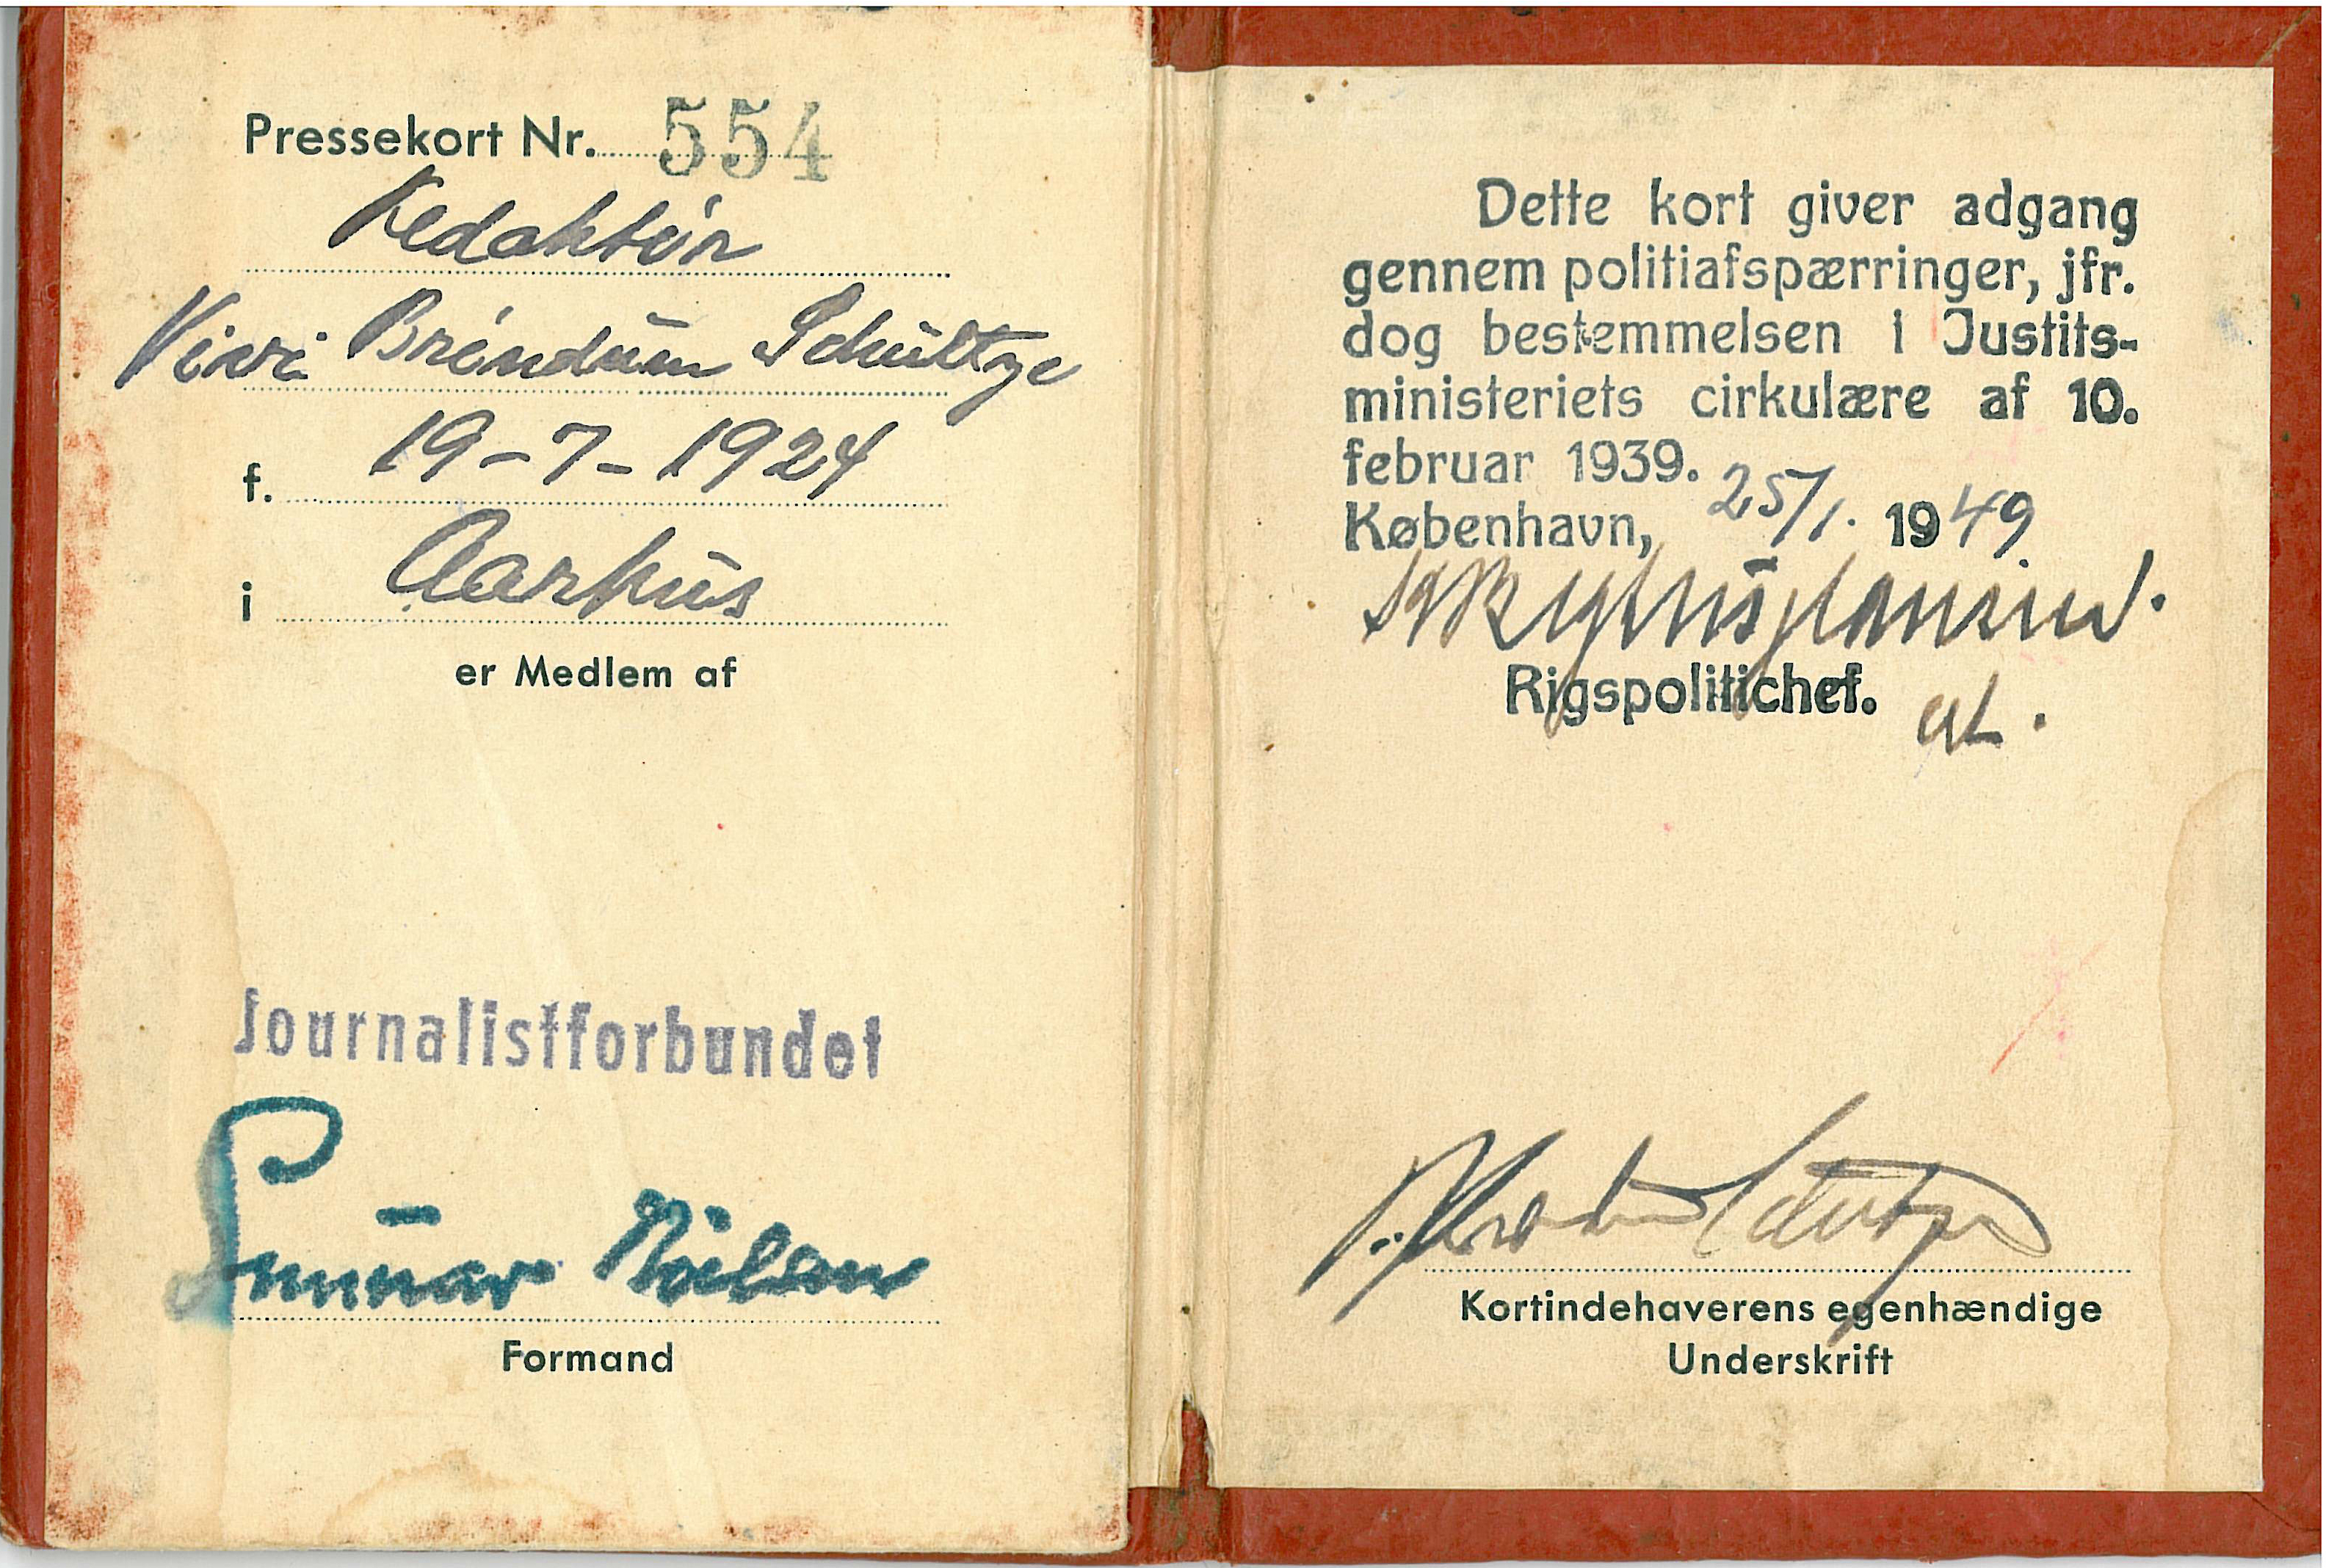 Pressekort Nr. 554
Redaktør
Vivi Bröndum Schultze
f. 19-7-1924
i Aarhus
er Medlem af
Journalistforbundet
Gunnar Nielsen
Formand
Dette kort giver adgang
gennem politiafspærringer, jfr.
dog bestemmelsen i Justits-
ministeriets cirkulære af 10.
februar 1939.
København, 25/1. 1949
Rigspolitichef.
Schultze
Kortindehaverens egenhændige
Underskrift